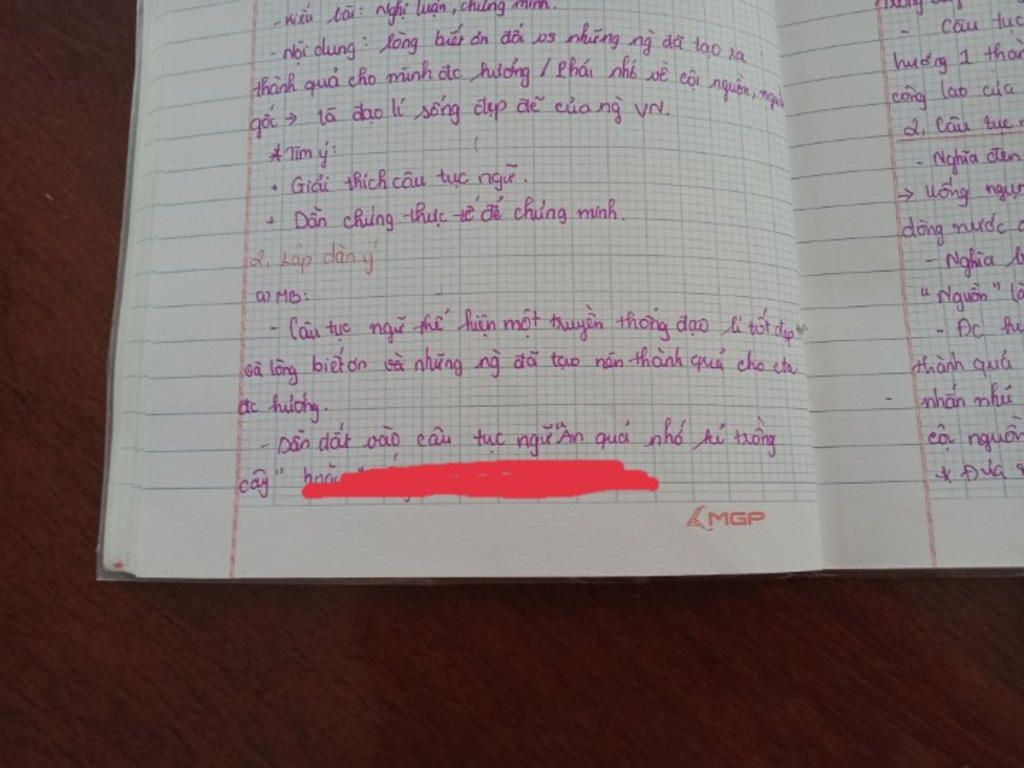 - Kiểu bài: Nghị luận, chứng minh.
- Nội dung: lòng biết ơn đối vs những ng đã tạo ra
thành quả cho mình đc hưởng / Phải nhớ về cội nguồn,
gốc → là đạo lí sống đẹp đẽ của ng VN.
* Tìm ý:
+ Giải thích câu tục ngữ.
+ Dẫn chứng thực tế để chứng minh.
2, Lập dàn ý
a) MB:
- Câu tục ngữ thể hiện một truyền thống đạo lí tốt đẹp
và lòng biết ơn và những ng đã tạo nên thành quả cho cta
đc hưởng.
- Dẫn dắt vào câu tục ngữ "Ăn quả nhớ kẻ trồng
cây"
MGP
- Câu tục
hưởng 1 thàn
công lao của
2, Câu tục
- Nghĩa đen
→ Uống
dòng nước
- Nghĩa
"Nguồn" là
- Đc
thành quả
nhắn nhủ
cội nguồn
* Đưa